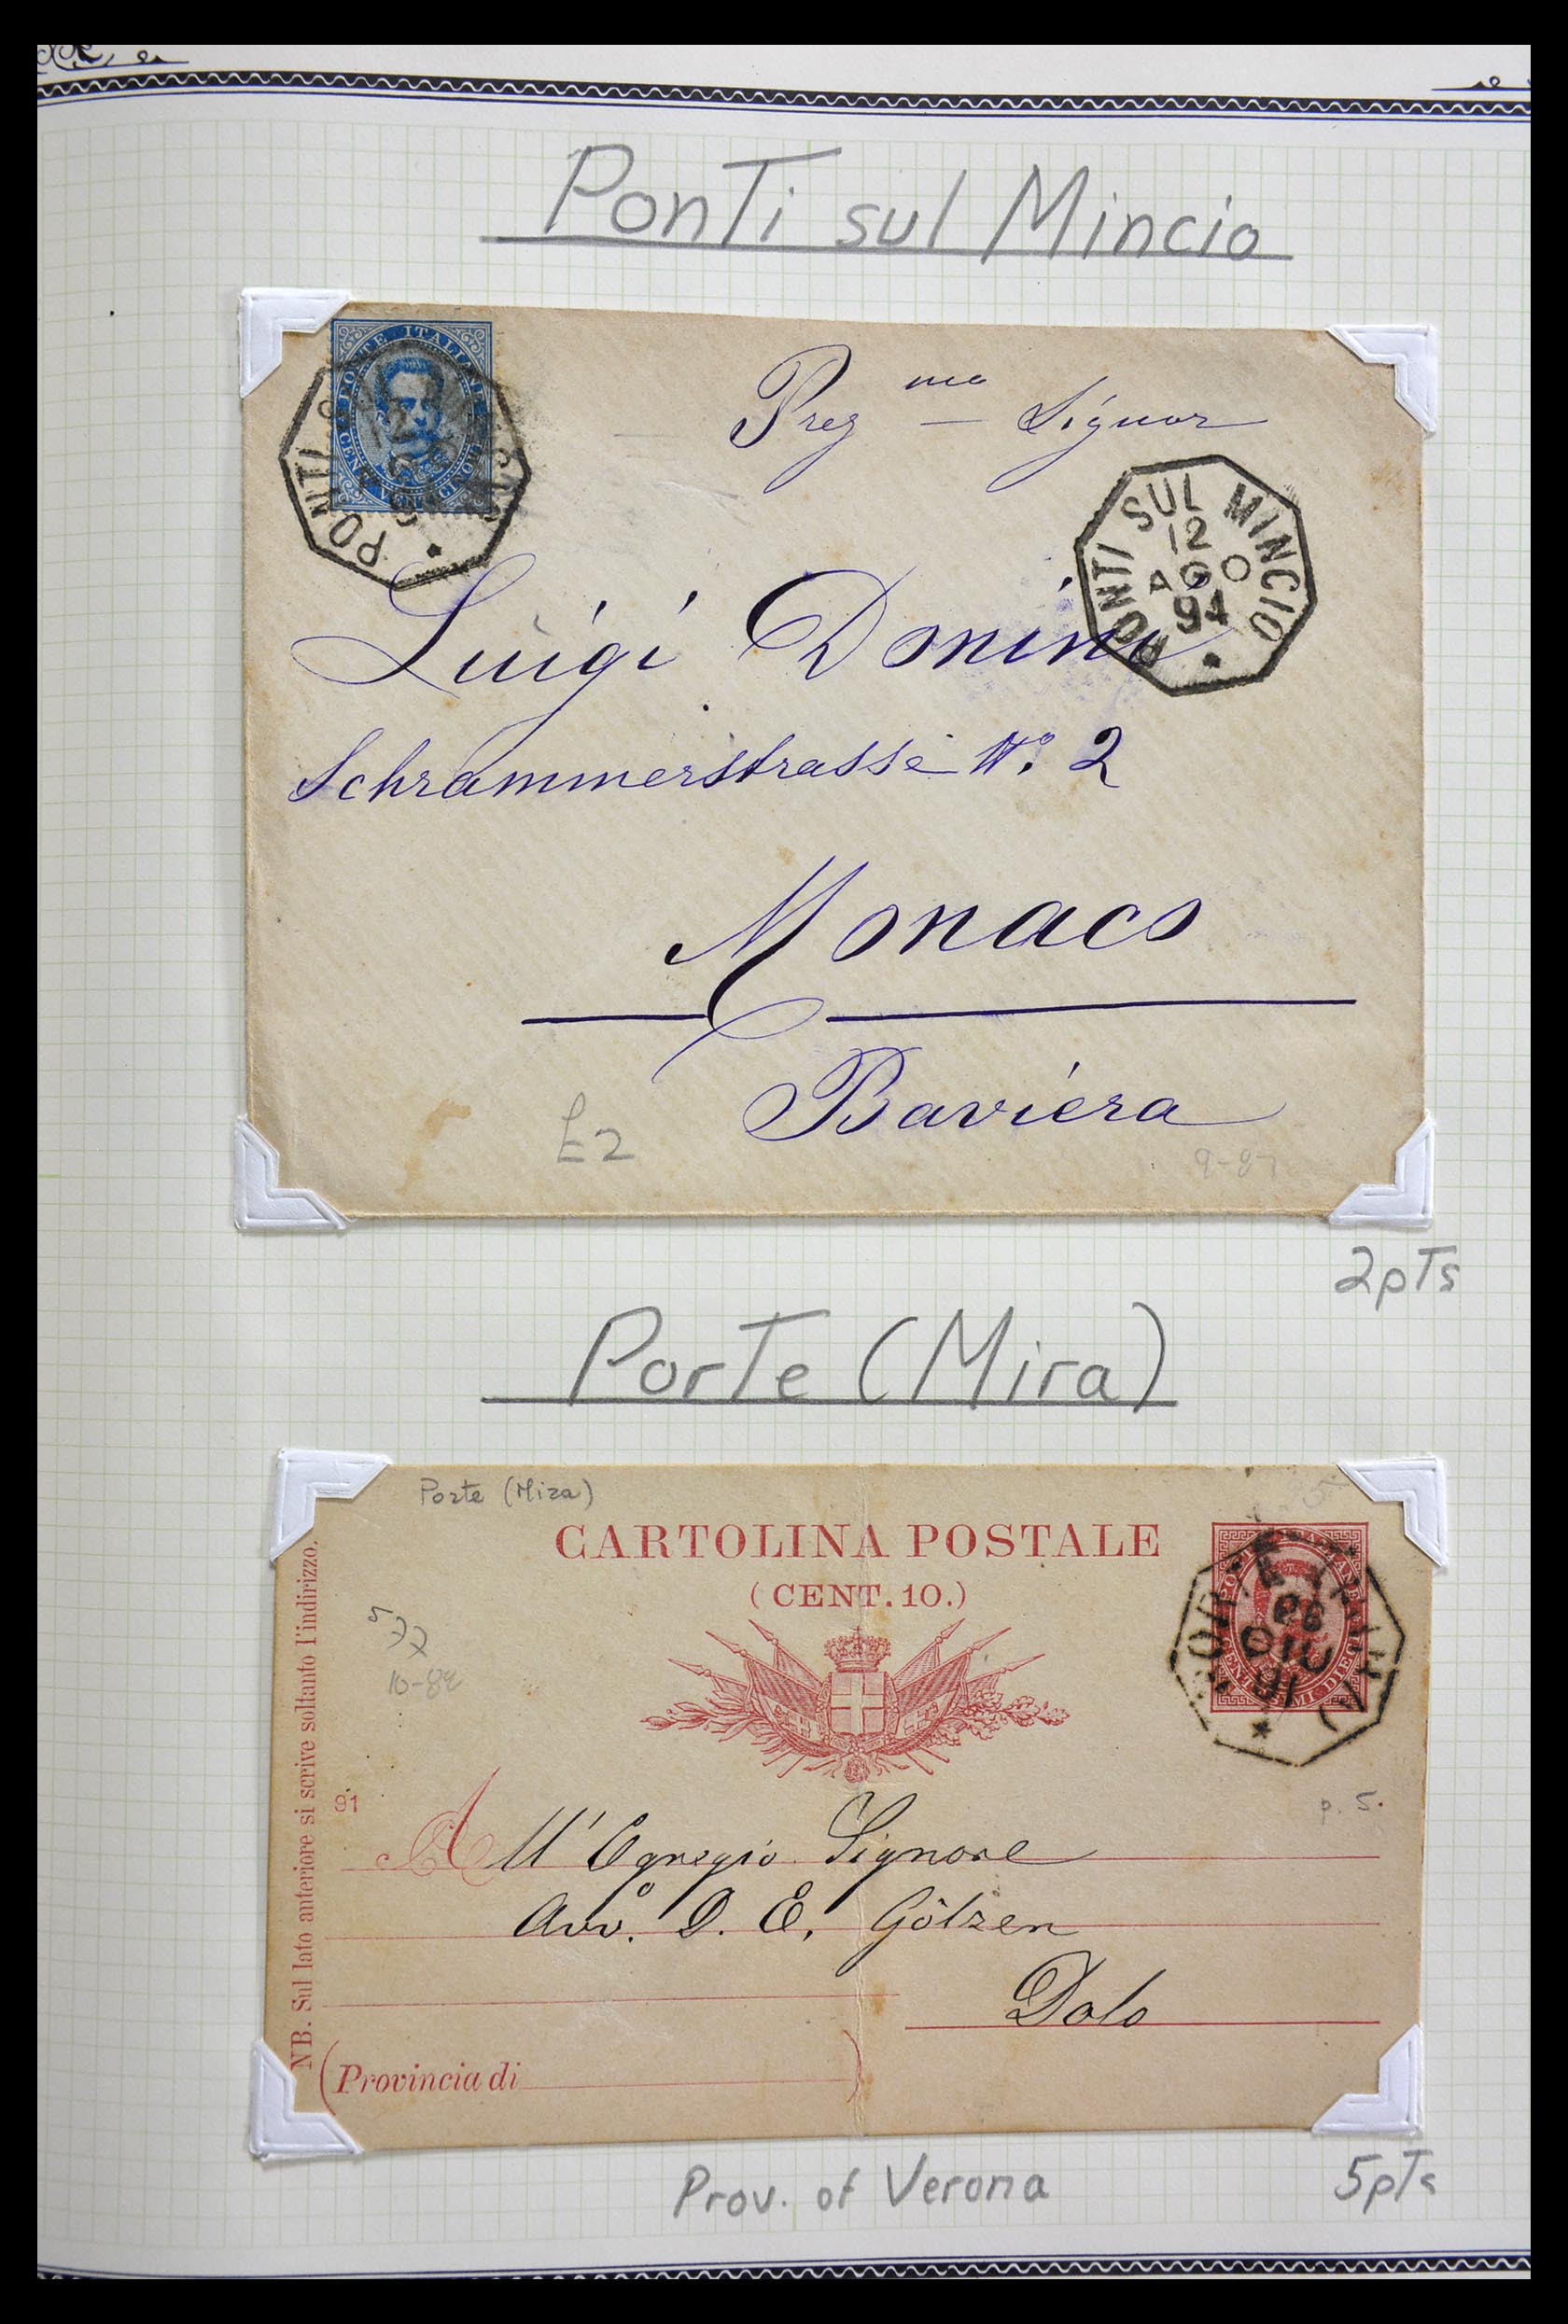 Ponti sul Mincio
POSTE ITALIANE
CENT. VENTICINQUE
PONTI
Preg mo Signor
PONTI SUL MINCIO
12
AGO
94
Luigi Donini
Schrammerstrasse N.º 2
Monaco
Baviera
£2
9-87
2pTs
Porte (Mira)
Porte (Mira)
CARTOLINA POSTALE
(CENT. 10.)
26
GIU
91
577
10-82
NB. Sul lato anteriore si scrive soltanto l'indirizzo.
91
p. 5.
All' Egregio Signore
Avvo. D. E. Gölzen
Dolo
(Provincia di )
Prov. of Verona
5pTs